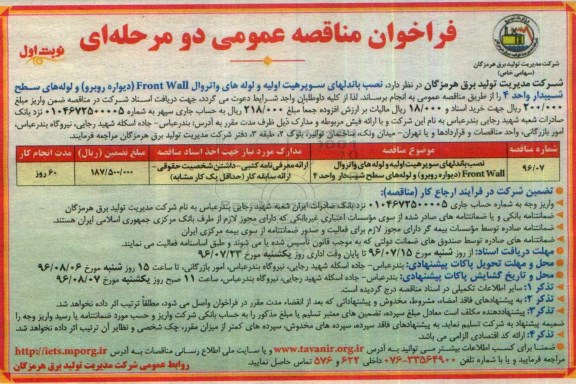 فراخوان مناقصه عمومی دو مرحله‌ای
نوبت اول
شرکت مدیریت تولید برق هرمزگان
(سهامی خاص)
شرکت مدیریت تولید برق هرمزگان در نظر دارد، نصب باندلهای سوپرهیت اولیه و لوله های واتروال Front Wall (دیواره روبرو) و لوله‌های سطح
شیبدار واحد ۴ را از طریق مناقصه عمومی به انجام برساند. لذا از کلیه داوطلبان واجد شرایط دعوت می گردد، جهت دریافت اسناد شرکت در مناقصه ضمن واریز مبلغ
۲۰۰/۰۰۰ ریال جهت خرید اسناد و ۱۸/۰۰۰ ریال مالیات بر ارزش افزوده جمعا مبلغ ۲۱۸/۰۰۰ ریال به حساب جاری سپهر به شماره ۰۱۰۴۶۷۲۵۰۰۰۰۵ نزد بانک
صادرات شعبه شهید رجایی بندرعباس به نام این شرکت و با ارائه فیش مربوطه و مدارک ذیل ظرف مدت مقرر به آدرس بندرعباس- جاده اسکله شهید رجایی، نیروگاه بندرعباس،
امور بازرگانی، واحد مناقصات و قراردادها و یا تهران- میدان ونک، ساختمان توانیر، بلوک ۲، طبقه ۳، دفتر شرکت مدیریت تولید برق هرمزگان مراجعه فرمایند.
شماره مناقصه موضوع مناقصه مدارک مورد نیاز جهت اخذ اسناد مناقصه مبلغ تضمین (ریال) مدت انجام کار
۹۶/۰۷ نصب باندلهای سوپرهیت اولیه و لوله های واتروال Front Wall (دیواره روبرو) و لوله‌های سطح شیبدار واحد ۴ ارائه معرفی نامه کتبی – داشتن شخصیت حقوقی – ارائه سابقه کار (حداقل یک کار مشابه) ۱۸۷/۵۰۰/۰۰۰ ۶۰ روز
تضمین شرکت در فرآیند ارجاع کار (مناقصه):
واریز وجه به شماره حساب جاری ۰۱۰۴۶۷۲۵۰۰۰۰۵ نزد بانک صادرات ایران شعبه شهید رجایی بندرعباس به نام شرکت مدیریت تولید برق هرمزگان.
ضمانتنامه بانکی و یا ضمانتنامه های صادر شده از سوی مؤسسات اعتباری غیربانکی که دارای مجوز لازم از طرف بانک مرکزی جمهوری اسلامی ایران هستند.
ضمانتنامه صادره توسط مؤسسات بیمه گر دارای مجوز لازم برای فعالیت و صدور ضمانتنامه از سوی بیمه مرکزی ایران
ضمانتنامه های صادره توسط صندوق های ضمانت دولتی که به موجب قانون تأسیس شده یا می شوند و طبق اساسنامه فعالیت می نمایند.
مهلت دریافت اسناد: از روز شنبه مورخ ۹۶/۰۷/۱۵ تا پایان وقت اداری روز یکشنبه مورخ ۹۶/۰۷/۲۳
محل و مهلت تحویل پاکات پیشنهادی: بندرعباس – جاده اسکله شهید رجایی، نیروگاه بندرعباس، امور بازرگانی، تا ساعت ۱۵ روز شنبه مورخ ۹۶/۰۸/۰۶
محل و تاریخ گشایش پاکات پیشنهادی: بندرعباس- جاده اسکله شهید رجایی، نیروگاه بندرعباس، ساعت ۱۱ صبح روز یکشنبه مورخ ۹۶/۰۸/۰۷
تذکر ۱: سایر اطلاعات تکمیلی در اسناد مناقصه درج گردیده است.
تذکر ۲: به پیشنهادهای فاقد امضاء، مشروط، مخدوش و پیشنهاداتی که بعد از انقضاء مدت مقرر در فراخوان واصل می شود، مطلقاً ترتیب اثر داده نخواهد شد.
تذکر ۳: پیشنهاددهنده مکلف است معادل مبلغ سپرده، تضمین های معتبر تسلیم یا مبلغ مذکور را به حساب بانکی شرکت واریز و حسب مورد ضمانتنامه یا رسید واریز وجه را
ضمیمه پیشنهاد به شرکت تسلیم نماید. به پیشنهادهای فاقد سپرده، سپرده های مخدوش، سپرده های کمتر از میزان مقرر، چک شخصی و نظایر آن ترتیب اثر داده نخواهد شد.
تذکر ۴: ارائه کد اقتصادی الزامی می باشد.
ضمنا برای کسب اطلاعات بیشتر می توانید به آدرس www.tavanir.org.ir و یا سایت ملی اطلاع رسانی مناقصات به آدرس http://iets.mporg.ir
مراجعه فرمایید و یا با شماره تلفن ۳۳۵۶۴۹۰۰-۰۷۶ داخلی ۶۲۳ و ۵۷۶ تماس حاصل نمایید.
روابط عمومی شرکت مدیریت تولید برق هرمزگان